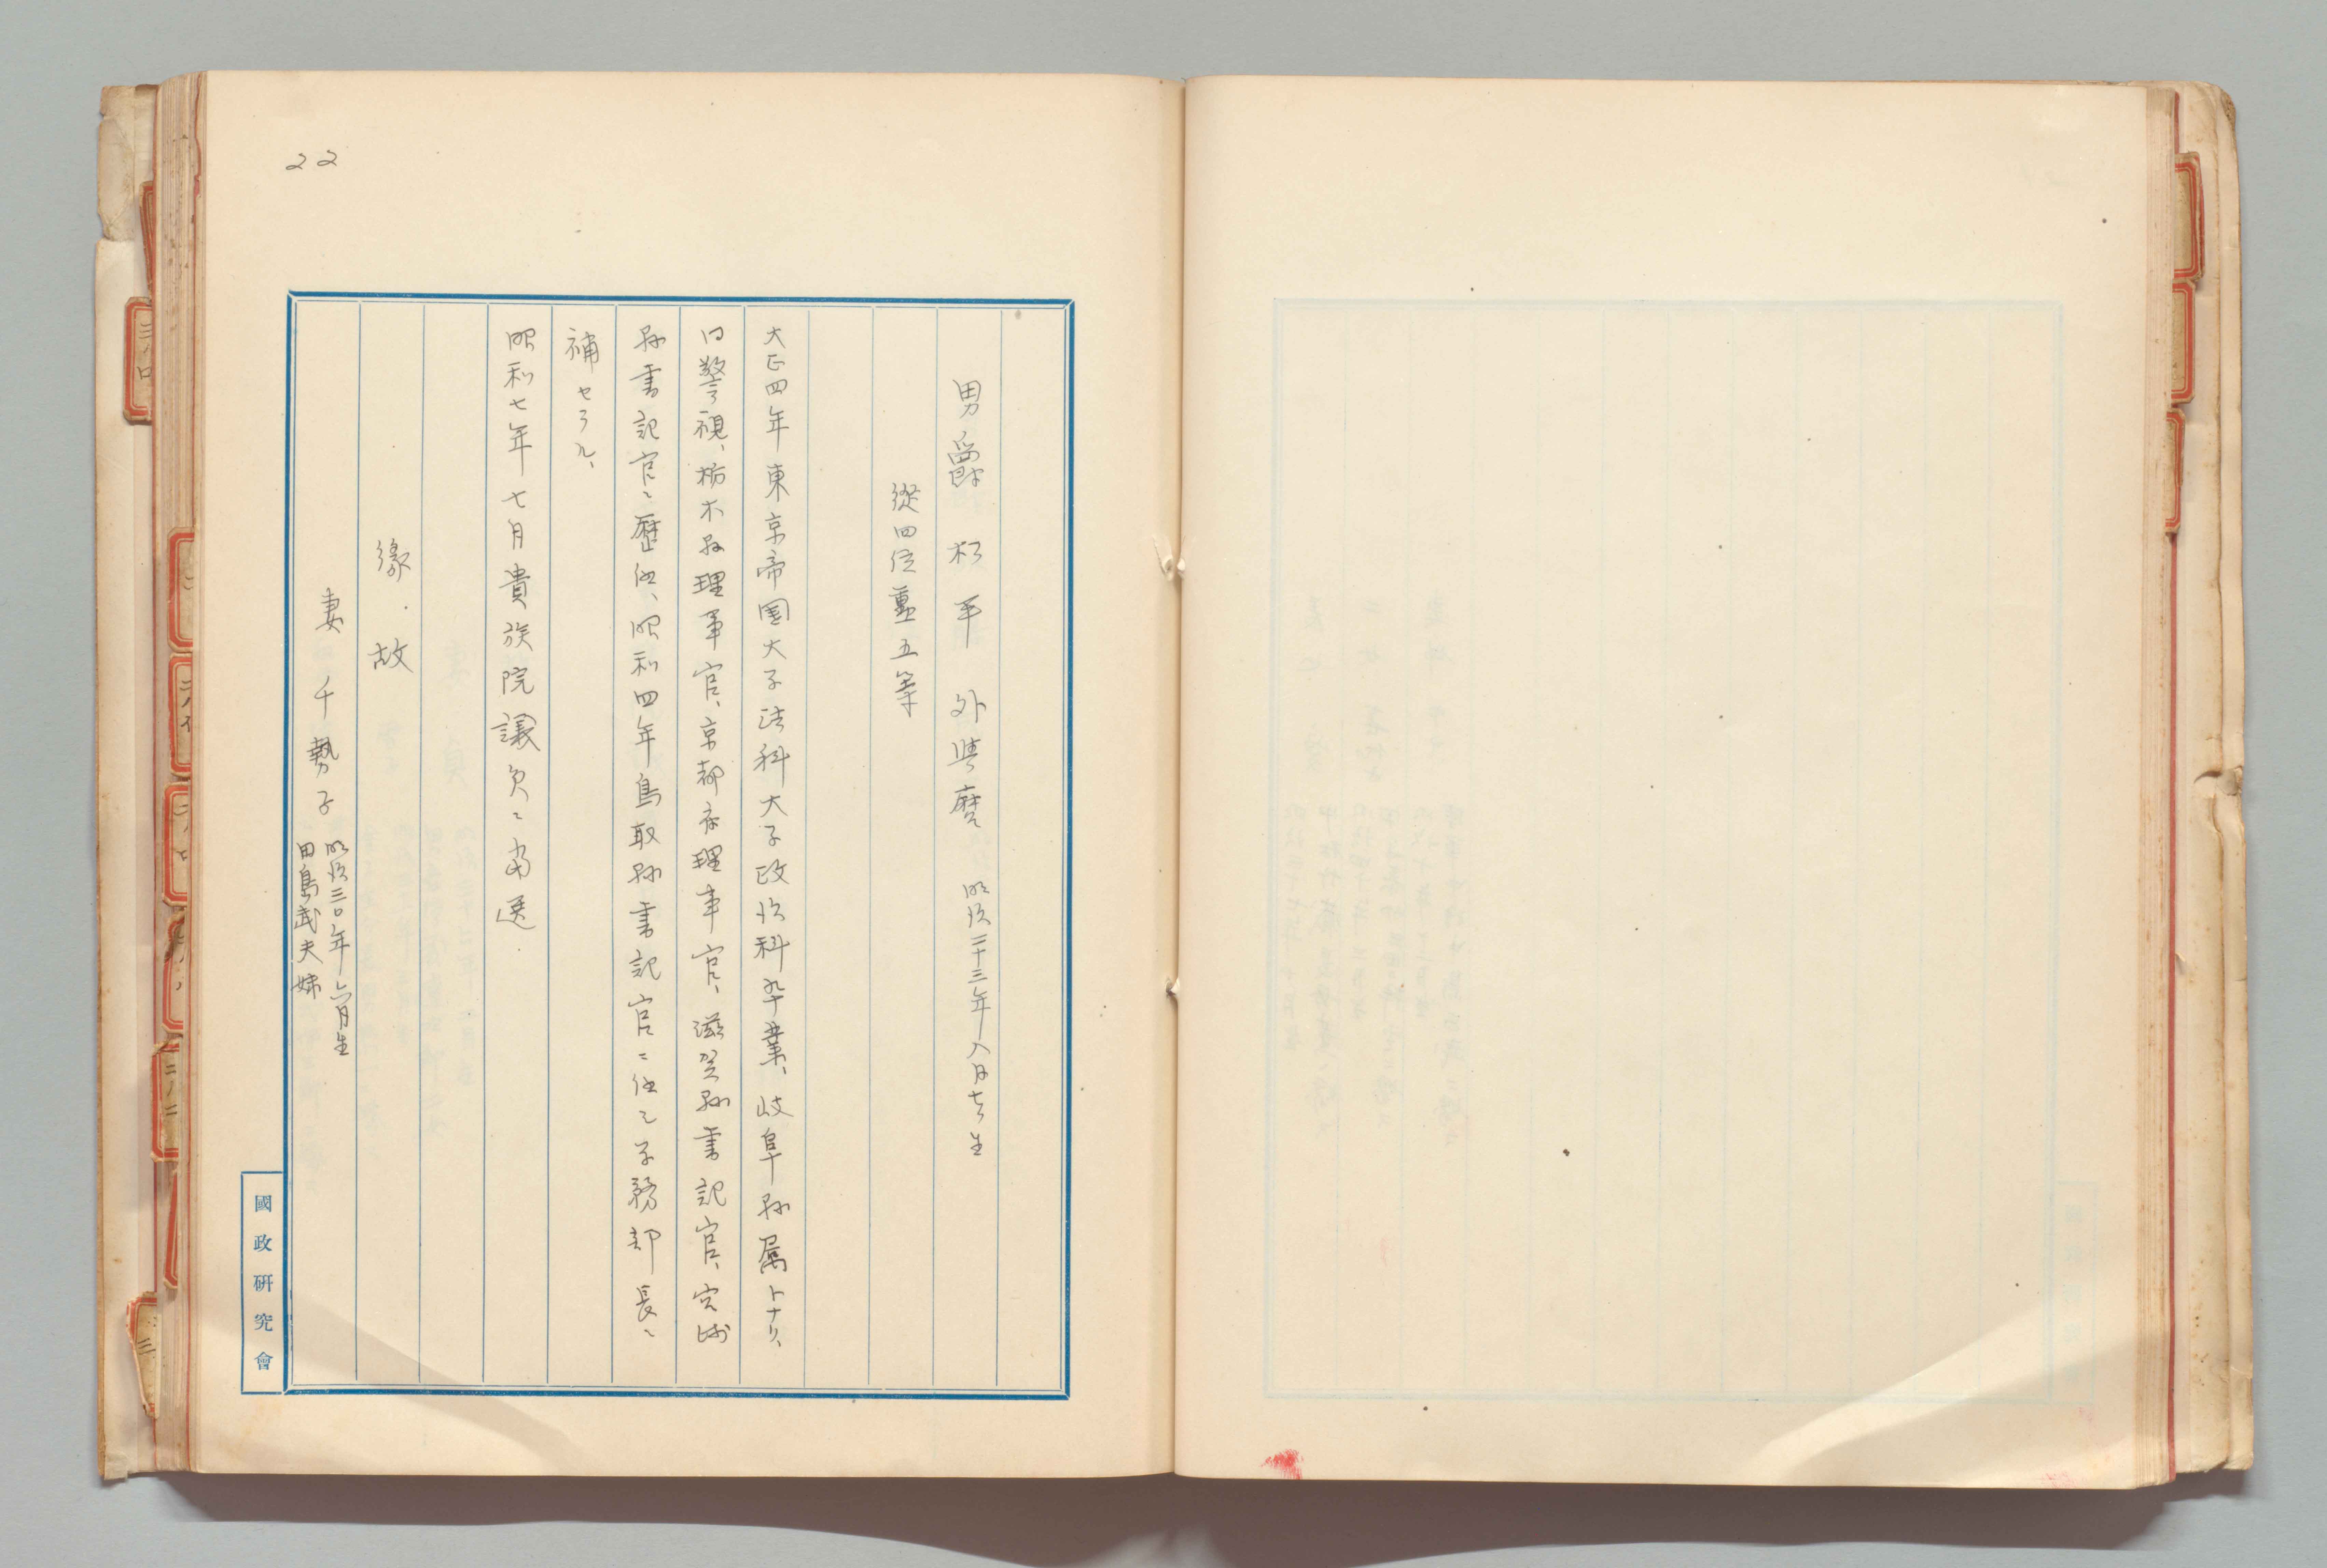 22
男爵 松平外與麿 明治二十三年八月十七日生
從四位勳五等
大正四年東京帝国大学法科大学政治科卒業、岐阜縣属トナリ、
同警視、栃木縣理事官、京都府理事官、滋賀縣書記官、宮城
縣書記官ニ歴任、昭和四年鳥取縣書記官ニ任シ学務部長ニ
補セラル、
昭和七年七月貴族院議員ニ当選.
縁.故
妻 千勢子 明治三〇年六月生
田島武夫姉
國政研究會